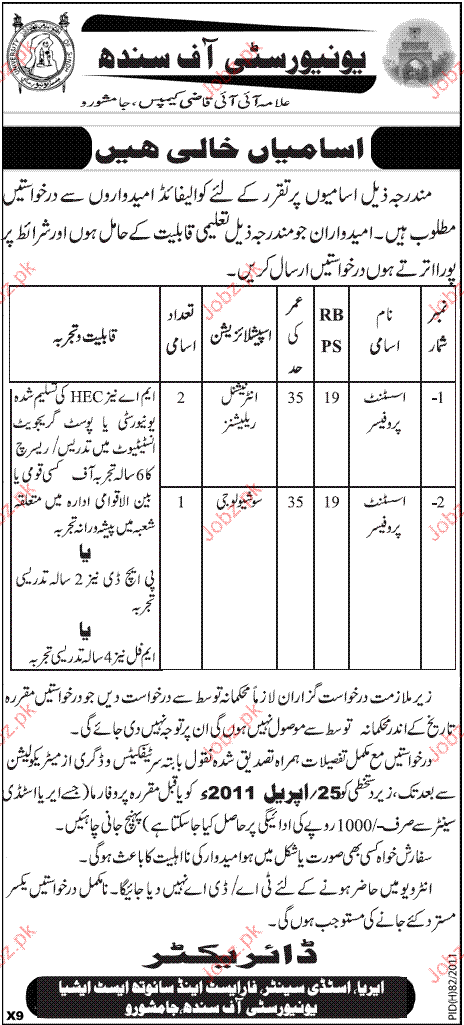 یونیورسٹی آف سندھ
علامہ آئی آئی قاضی کیمپس، جامشورو
اسامیاں خالی ھیں
مندرجہ ذیل اسامیوں پر تقرر کے لئے کوالیفائڈ امیدواروں سے درخواستیں
مطلوب ہیں۔ امیدواران جو مندرجہ ذیل تعلیمی قابلیت کے حامل ہوں اور شرائط پر
پورا اترتے ہوں درخواستیں ارسال کریں۔
نمبر شمار
نام اسامی
RB PS
عمر کی حد
اسپیشلائزیشن
تعداد اسامی
قابلیت و تجربہ
1-
اسسٹنٹ پروفیسر
19
35
انٹرنیشنل ریلیشنز
2
2-
اسسٹنٹ پروفیسر
19
35
سوشیولوجی
1
ایم اے نیز HEC کی تسلیم شدہ
یونیورٹی یا پوسٹ گریجویٹ
انسٹیٹیوٹ میں تدریس/ریسرچ
کا 6 سالہ تجربہ آف کسی قومی یا
بین الاقوامی ادارہ میں متعلقہ
شعبہ میں پیشہ ورانہ تجربہ
یا
پی ایچ ڈی نیز 2 سالہ تدریسی
تجربہ
یا
ایم فل نیز 4 سالہ تدریسی تجربہ
زیر ملازمت درخواست گزاران لازماً محکمانہ توسط سے درخواست دیں جو درخواستیں مقررہ
تاریخ کے اندر محکمانہ توسط سے موصول نہیں ہوں گی ان پر توجہ نہیں دی جائے گی۔
درخواستیں مع مکمل تفصیلات ہمراہ تصدیق شدہ نقول بابتہ سرٹیفکیٹس و ڈگری از میٹریکولیشن
سے بعد تک، زیر دستخطی کو 25/اپریل 2011ء کو یا قبل مقررہ پروفارما (جسے ایریا اسٹڈی
سینٹر سے صرف -/1000 روپے کی ادائیگی پر حاصل کیا جا سکتا ہے) پہنچ جانی چاہئیں۔
سفارش خواہ کسی بھی صورت یا شکل میں ہو امیدوار کی نااہلیت کا باعث ہوگی۔
انٹرویو میں حاضر ہونے کے لئے ٹی اے/ڈی اے نہیں دیا جائیگا۔ نامکمل درخواستیں یکسر
مسترد کئے جانے کی مستوجب ہوں گی۔
ڈائریکٹر
ایریا، اسٹڈی سینٹر، فار ایسٹ اینڈ ساؤتھ ایسٹ ایشیا
یونیورسٹی آف سندھ، جامشورو
PID(H)82/2011
X9
Jobz.pk